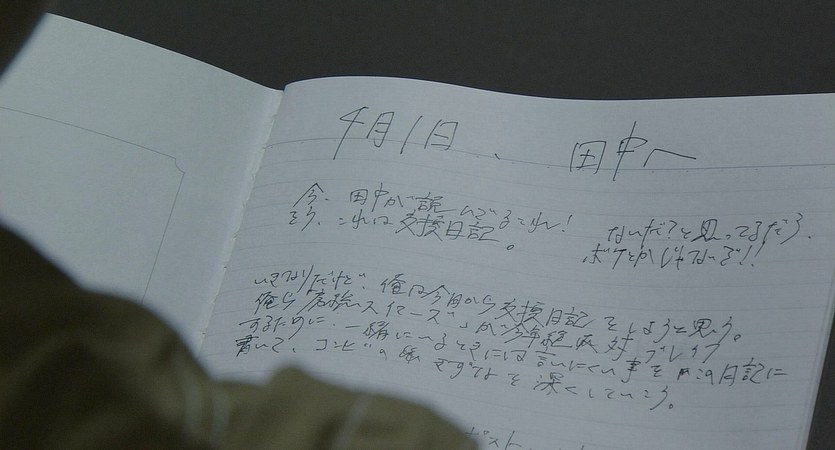 4月1日、 田中へ
今、田中が読んでるこれ! なんだ?と思ってるだろう。
そう、これは交換日記。 ボケとかじゃないぞ!!
いきなりだけど、俺は今日から交換日記をしようと思う。
俺ら 房総スイマーズ が今年絶対ブレイク
するために、一緒にいるときには言いにくい事をこの日記に
書いて、コンビの きずなを深くしていこう。